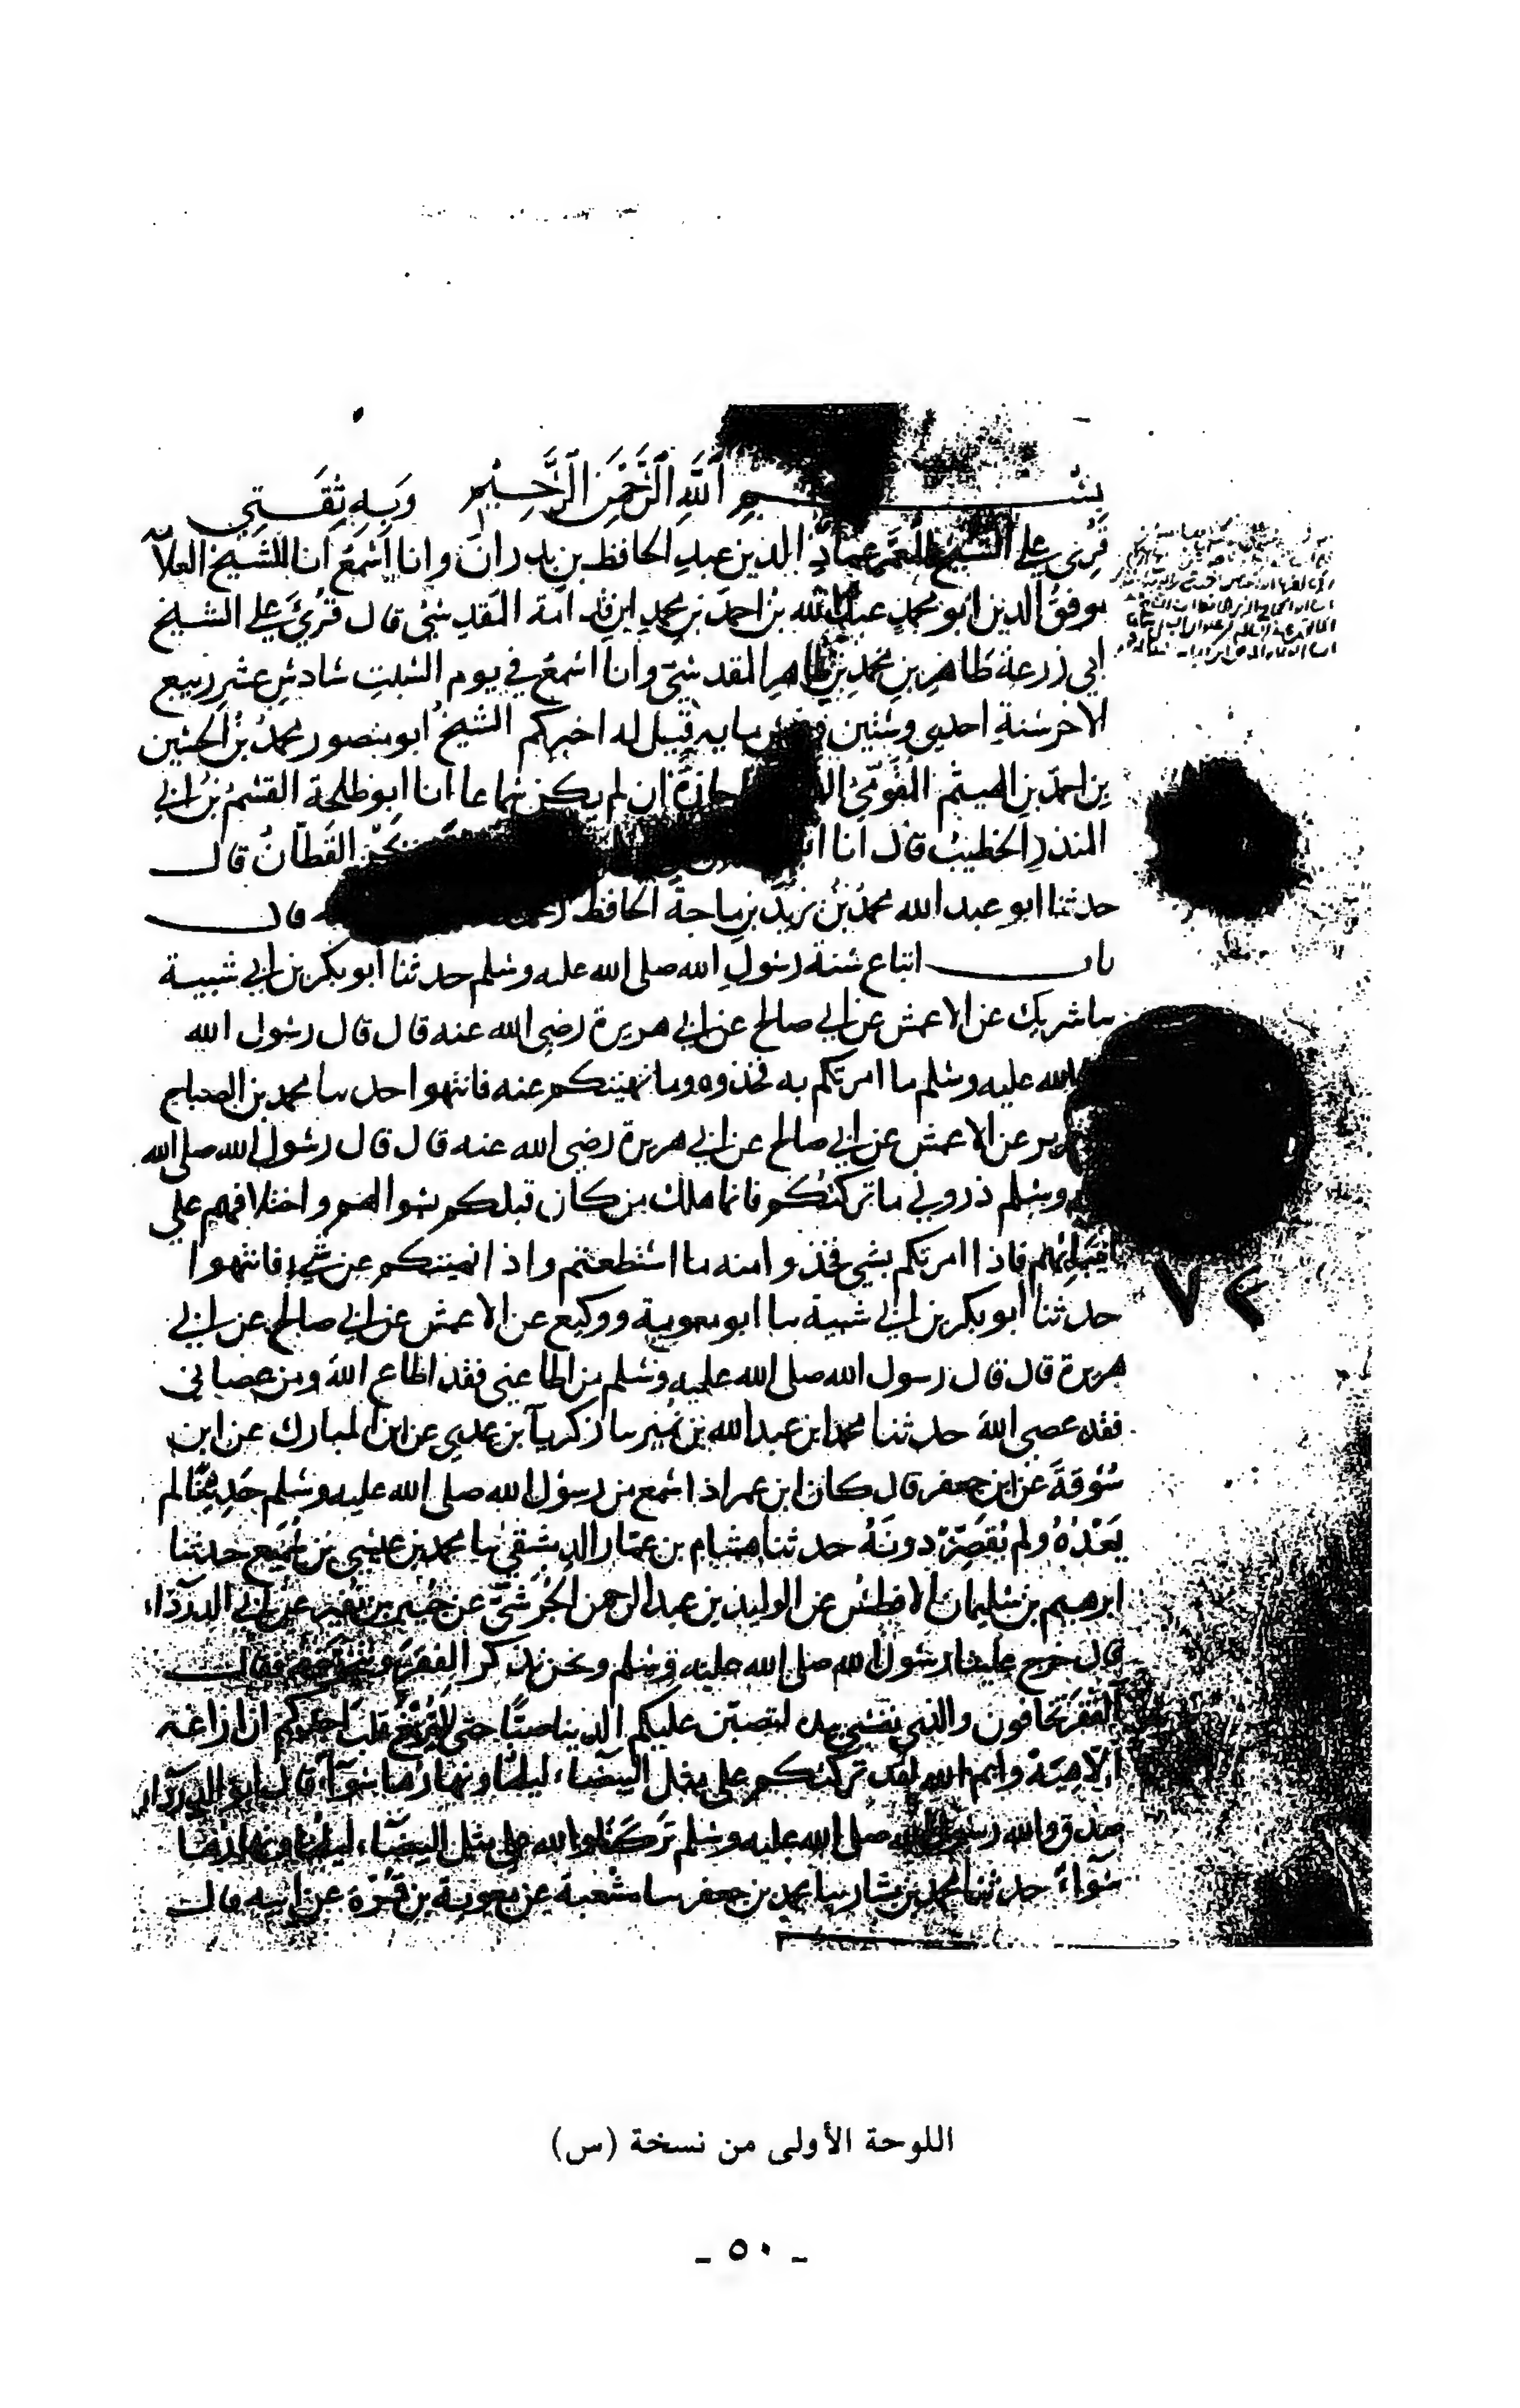 بسم الله الرحمن الرحيم وبه ثقتي
قرئ على الشيخ المعمر عماد الدين عبد الحافظ بن بدران وانا اسمع انا الشيخ العلا
موفق الدين ابو محمد عبد الله بن احمد بن محمد ابن قدامة المقدسي قال قرئ على الشيخ
ابي زرعة طاهر بن محمد بن طاهر المقدسي وانا اسمع في يوم السبت سادس عشر ربيع
الاخر سنة احدى وستين وخمس مايه قيل له اخبركم الشيخ ابو منصور محمد بن الحسين
بن احمد بن الهيثم المقومي اجازة ان لم يكن سماعا انا ابو طلحة القسم بن ابي
المنذر الخطيب قال انا القطان قال
حدثنا ابو عبد الله محمد بن يزيد بن ماجة الحافظ قال
باب اتباع سنة رسول الله صلى الله عليه وسلم حدثنا ابو بكر بن ابي شيبة
سا شريك عن الاعمش عن ابي صالح عن ابي هريرة رضي الله عنه قال قال رسول الله
الله عليه وسلم ما امرتكم به فخذوه وما نهيتكم عنه فانتهوا حدسا محمد بن الصباح
جرير عن الاعمش عن ابي صالح عن ابي هريرة رضي الله عنه قال قال رسول الله صلى الله
وسلم ذروني ما تركتكم فانما هلك من كان قبلكم بسوالهم واختلافهم على
انبيائهم فاذا امرتكم بشي فخذوا منه ما استطعتم واذا نهيتكم عن شيء فانتهوا
حدثنا ابو بكر بن ابي شيبة سا ابو معوية ووكيع عن الاعمش عن ابي صالح عن ابي
هريرة قال قال رسول الله صلى الله عليه وسلم من اطاعني فقد اطاع الله ومن عصاني
فقد عصى الله حدثنا محمد ابن عبد الله بن نمير سا زكريآ بن عدي عن ابن المبارك عن ابن
سوقة عن ابن جعفر قال كان ابن عمر اذا سمع من رسول الله صلى الله عليه وسلم حديثا لم
يعده ولم يقصر دونه حدثنا هشام بن عمار الدمشقي سا محمد بن عيسى بن سميع حدثنا
ابرهيم بن سليمان الافطس عن الوليد بن عبد الرحمن الجرشي عن جبير بن نفير عن ابي الدرداء
قال خرج علينا رسول الله صلى الله عليه وسلم ونحن نذكر الفقر ونتخوفه فقال
آلفقر تخافون والذي نفسي بيده لتصبن عليكم الدنيا صبا حتى لا يزيغ قلب احدكم ان ازاغه
الا هيه وايم الله لقد تركتكم على مثل البيضاء ليلها ونهارها سوآء قال ابو الدرداء
صدق والله رسول الله صلى الله عليه وسلم تركنا والله على مثل البيضاء ليلها ونهارها
سوآء حدثنا محمد بن بشار سا محمد بن جعفر سا شعبة عن معوية بن قرة عن ابيه قال
اللوحة الأولى من نسخة (س)
- ٥٠ -